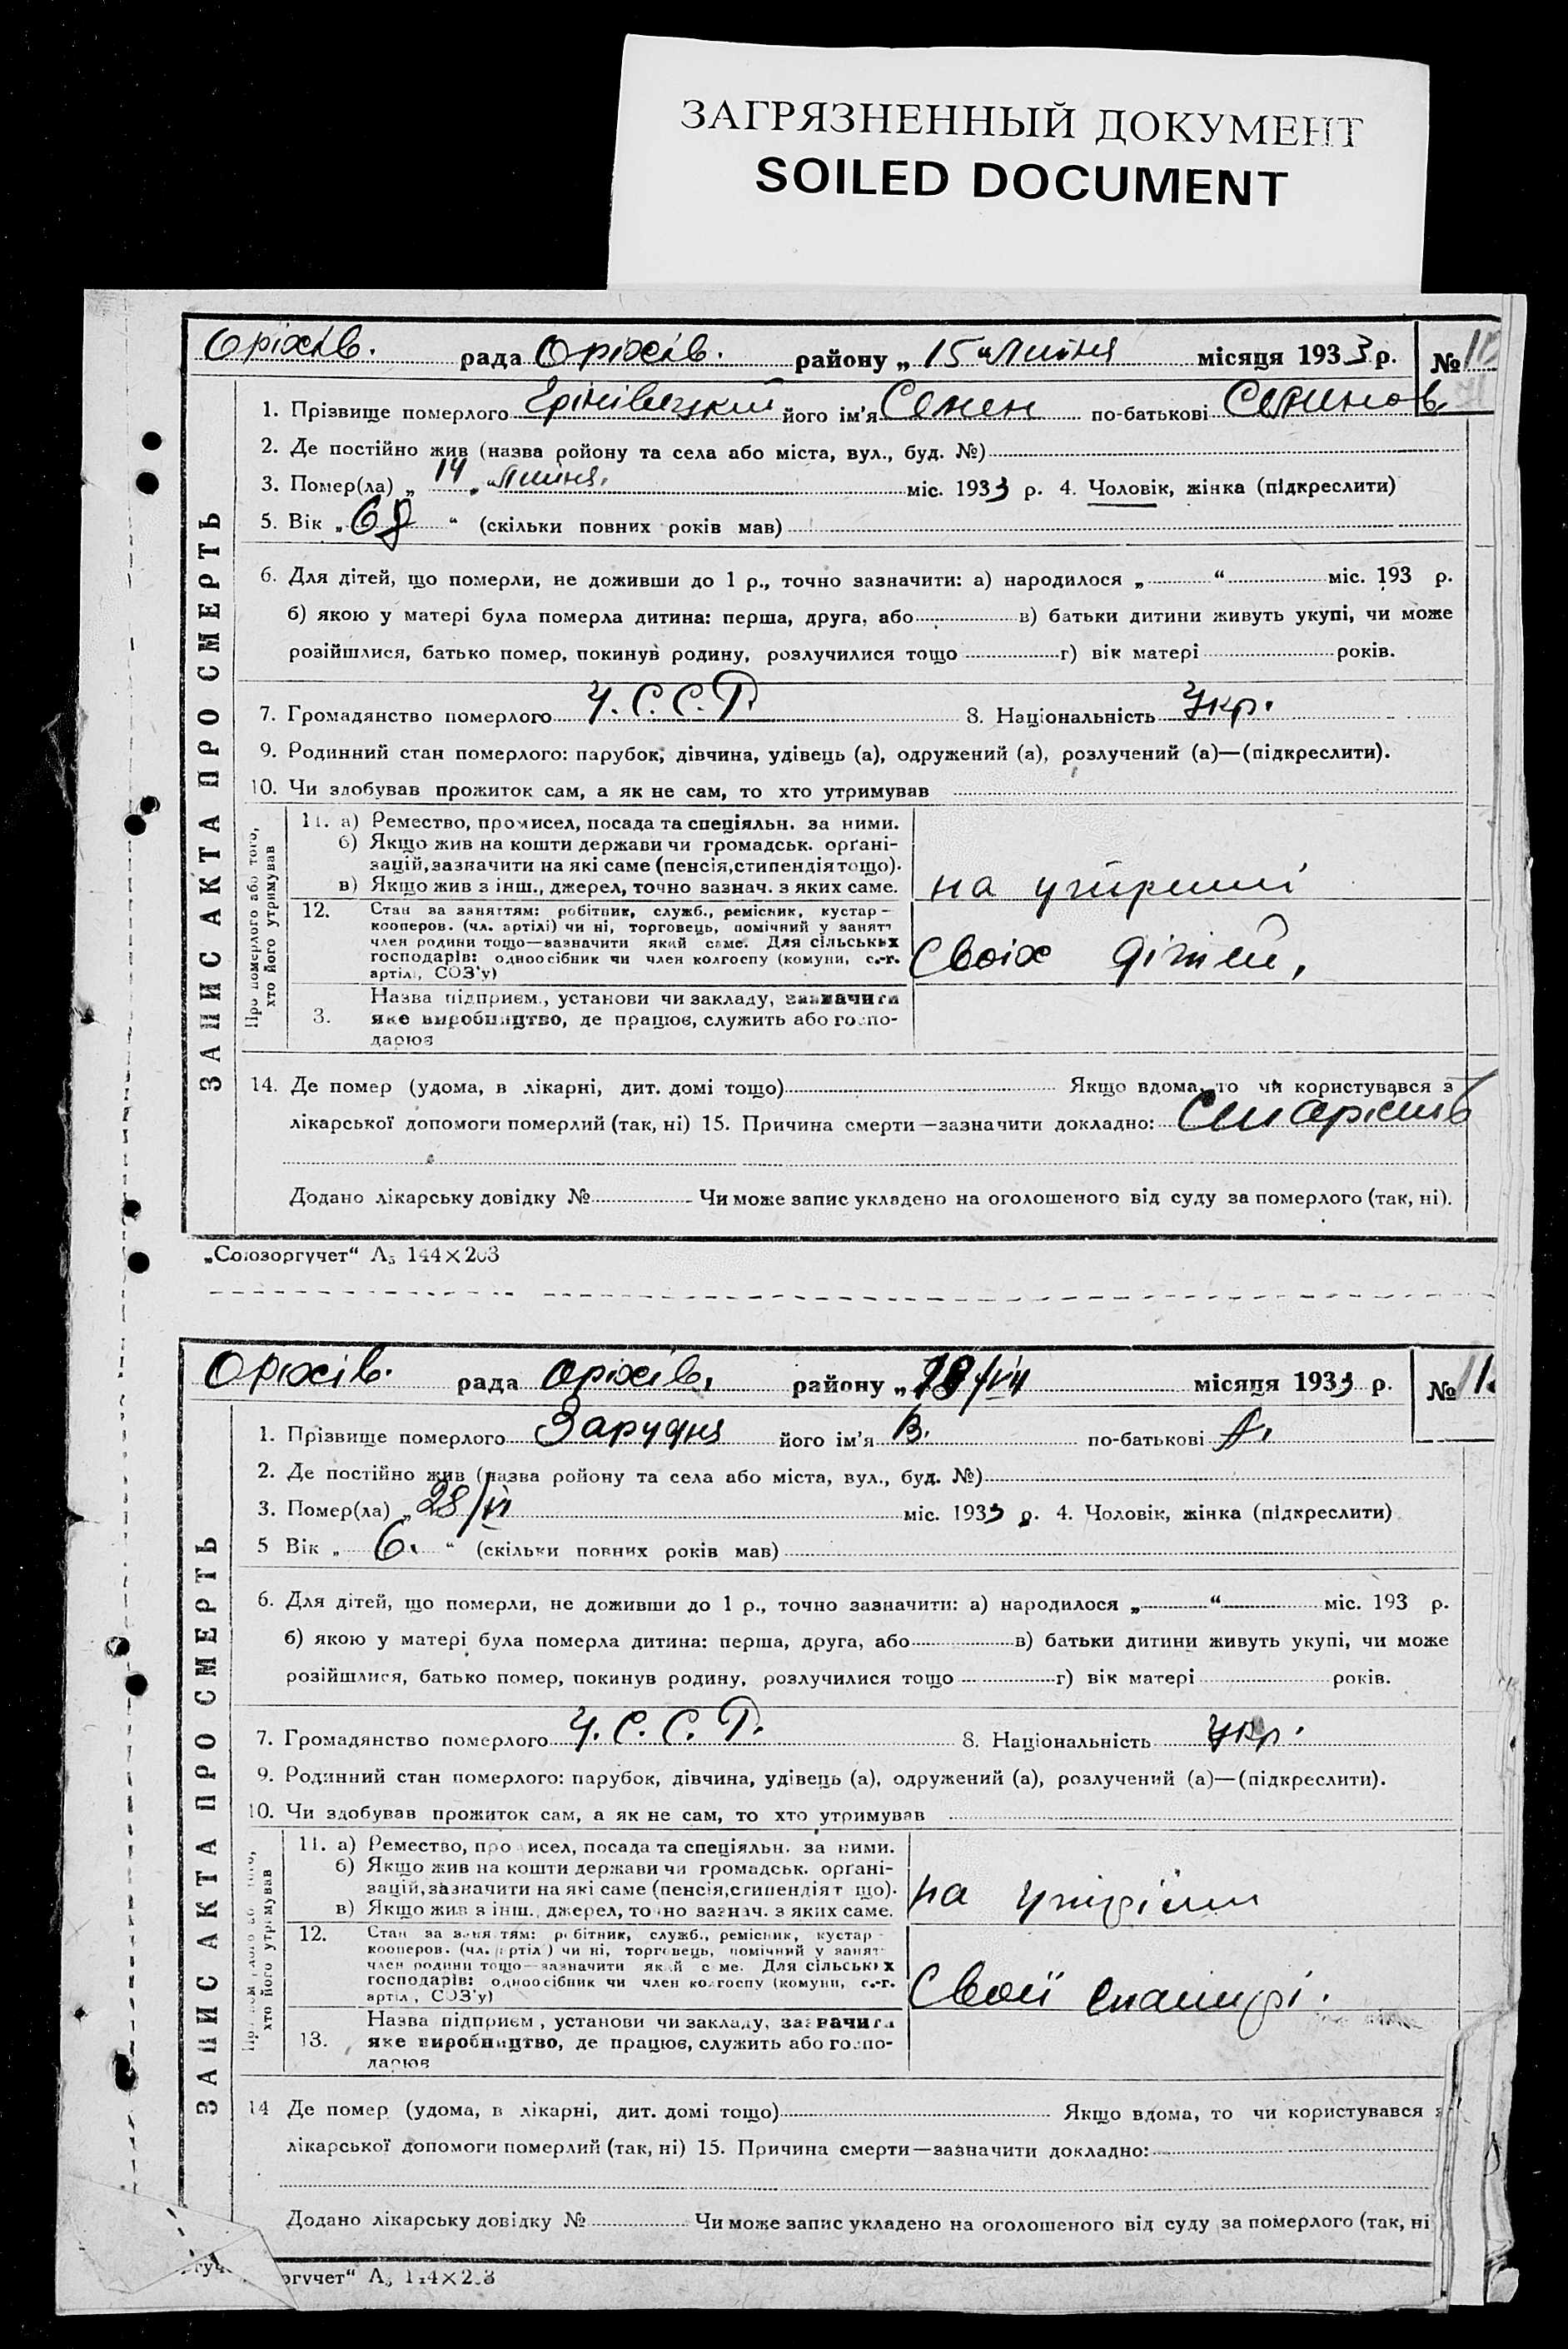 ЗАГРЯЗНЕННЫЙ ДОКУМЕНТ
SOILED DOCUMENT
Оріхів. рада Оріхів. району „ 15 “ липня місяця 1933 р. №
1. Прізвище померлого його ім'я Семен по-батькові Семенов.
2. Де постійно жив (назва району та села або міста, вул., буд. №)
3. Помер(ла) „ 14 „ липня. міс. 1933 р. 4. Чоловік, жінка (підкреслити)
5. Вік „ 68 “ (скільки повних років мав)
ЗАПИС АКТА ПРО СМЕРТЬ
6. Для дітей, що померли, не доживши до 1 р., точно зазначити: а) народилося „ “ міс. 193 р.
б) якою у матері була померла дитина: перша, друга, або в) батьки дитини живуть укупі, чи може
розійшлися, батько помер, покинув родину, розлучилися тощо г) вік матері років.
7. Громадянство померлого У. С. С. Р. 8. Національність Укр.
9. Родинний стан померлого: парубок, дівчина, удівець (а), одружений (а), розлучений (а)—(підкреслити).
10. Чи здобував прожиток сам, а як не сам, то хто утримував
Про померлого або того,
хто його утримував
11. а) Ремество, промисел, посада та спеціяльн. за ними.
б) Якщо жив на кошти держави чи громадськ. орґані-
зацій, зазначити на які саме (пенсія, стипендія тощо).
в) Якщо жив з інш., джерел, точно зазнач. з яких саме.
на утриманні
12. Стан за заняттям: робітник, служб., ремісник, кустар —
кооперов. (чл. артілі) чи ні, торговець, помічний у занятт
член родини тощо—зазначити який саме. Для сільських
господарів: одноосібник чи член колгоспу (комуни, с.-г.
артілі, СОЗ'у)
своїх дітей,
3. Назва підприєм., установи чи закладу, зазначити
яке виробництво, де працює, служить або госпо-
дарює
14. Де помер (удома, в лікарні, дит. домі тощо) Якщо вдома, то чи користувався з
лікарської допомоги померлий (так, ні) 15. Причина смерти—зазначити докладно: Старість
Додано лікарську довідку № Чи може запис укладено на оголошеного від суду за померлого (так, ні).
„Союзоргучет“ А5 144×203
Оріхів. рада Оріхів. району „ 28/VII місяця 1933 р. №
1. Прізвище померлого Зарудня його ім'я В. по-батькові А.
2. Де постійно жив (назва району та села або міста, вул., буд. №)
3. Помер(ла) „ 28/VI міс. 1933 р. 4. Чоловік, жінка (підкреслити)
5 Вік „ 6. “ (скільки повних років мав)
ЗАПИС АКТА ПРО СМЕРТЬ
6. Для дітей, що померли, не доживши до 1 р., точно зазначити: а) народилося „ “ міс. 193 р.
б) якою у матері була померла дитина: перша, друга, або в) батьки дитини живуть укупі, чи може
розійшлися, батько помер, покинув родину, розлучилися тощо г) вік матері років.
7. Громадянство померлого У. С. С. Р. 8. Національність укр.
9. Родинний стан померлого: парубок, дівчина, удівець (а), одружений (а), розлучений (а)—(підкреслити).
10. Чи здобував прожиток сам, а як не сам, то хто утримував
хто його утримував
11. а) Ремество, промисел, посада та спеціяльн. за ними.
б) Якщо жив на кошти держави чи громадськ. орґані-
зацій, зазначити на які саме (пенсія, стипендія тощо).
в) Якщо жив з інш., джерел, точно зазнач. з яких саме.
на
12. Стан за заняттям: робітник, служб., ремісник, кустар -
кооперов. (чл. артілі) чи ні, торговець, помічний у занят
член родини тощо—зазначити який саме. Для сільських
господарів: одноосібник чи член колгоспу (комуни, с.-г.
артілі, СОЗ'у)
своїй матері.
13. Назва підприєм., установи чи закладу, зазначити
яке виробництво, де працює, служить або госпо-
дарює
14 Де помер (удома, в лікарні, дит. домі тощо) Якщо вдома, то чи користувався з
лікарської допомоги померлий (так, ні) 15. Причина смерти—зазначити докладно:
Додано лікарську довідку № Чи може запис укладено на оголошеного від суду за померлого (так, ні
ргучет“ А5 144×203